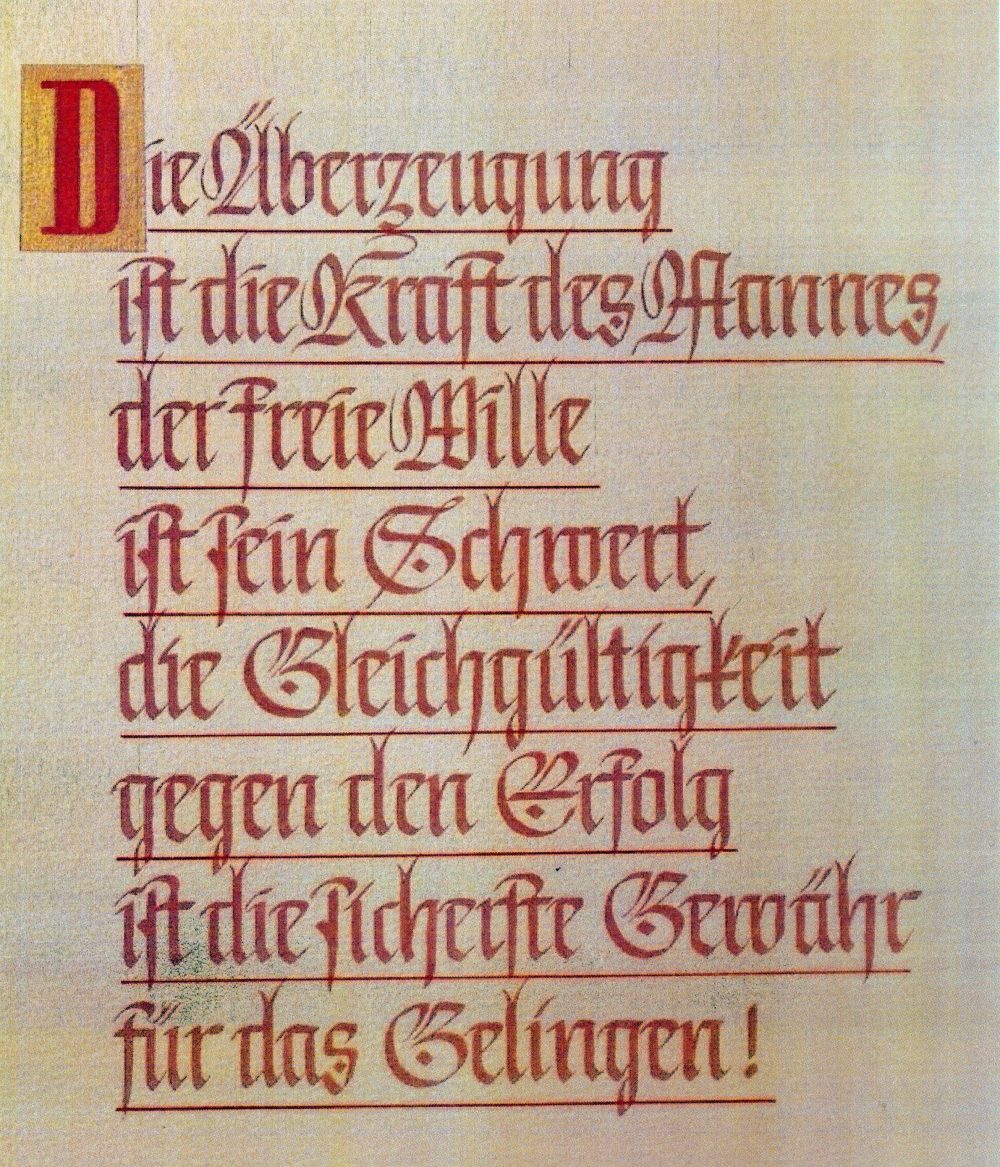 Die Überzeugung
ist die Kraft des Mannes,
der freie Wille
ist sein Schwert,
die Gleichgültigkeit
gegen den Erfolg
ist die sicherste Gewähr
für das Gelingen!